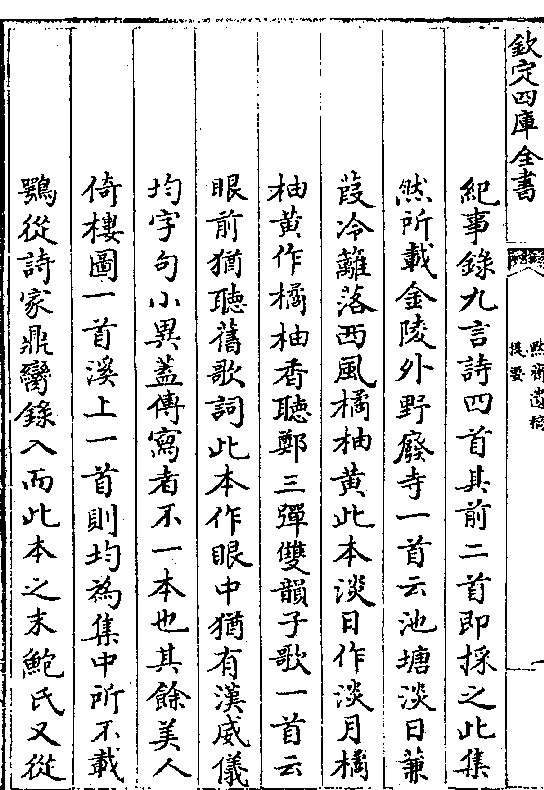 欽定四庫全書
默齋遺稿
提要
紀事錄九言詩四首其前二首即採之此集
然所載金陵外野廢寺一首云池塘淡日蒹
葭冷籬落西風橘柚黃此本淡日作淡月橘
柚黃作橘柚香聽鄭三彈雙韻子歌一首云
眼前猶聽舊歌詞此本作眼中猶有漢威儀
均字句小異蓋傳寫者不一本也其餘美人
倚樓圖一首溪上一首則均為集中所不載
鶚從詩家鼎臠錄入而此本之末鮑氏又從